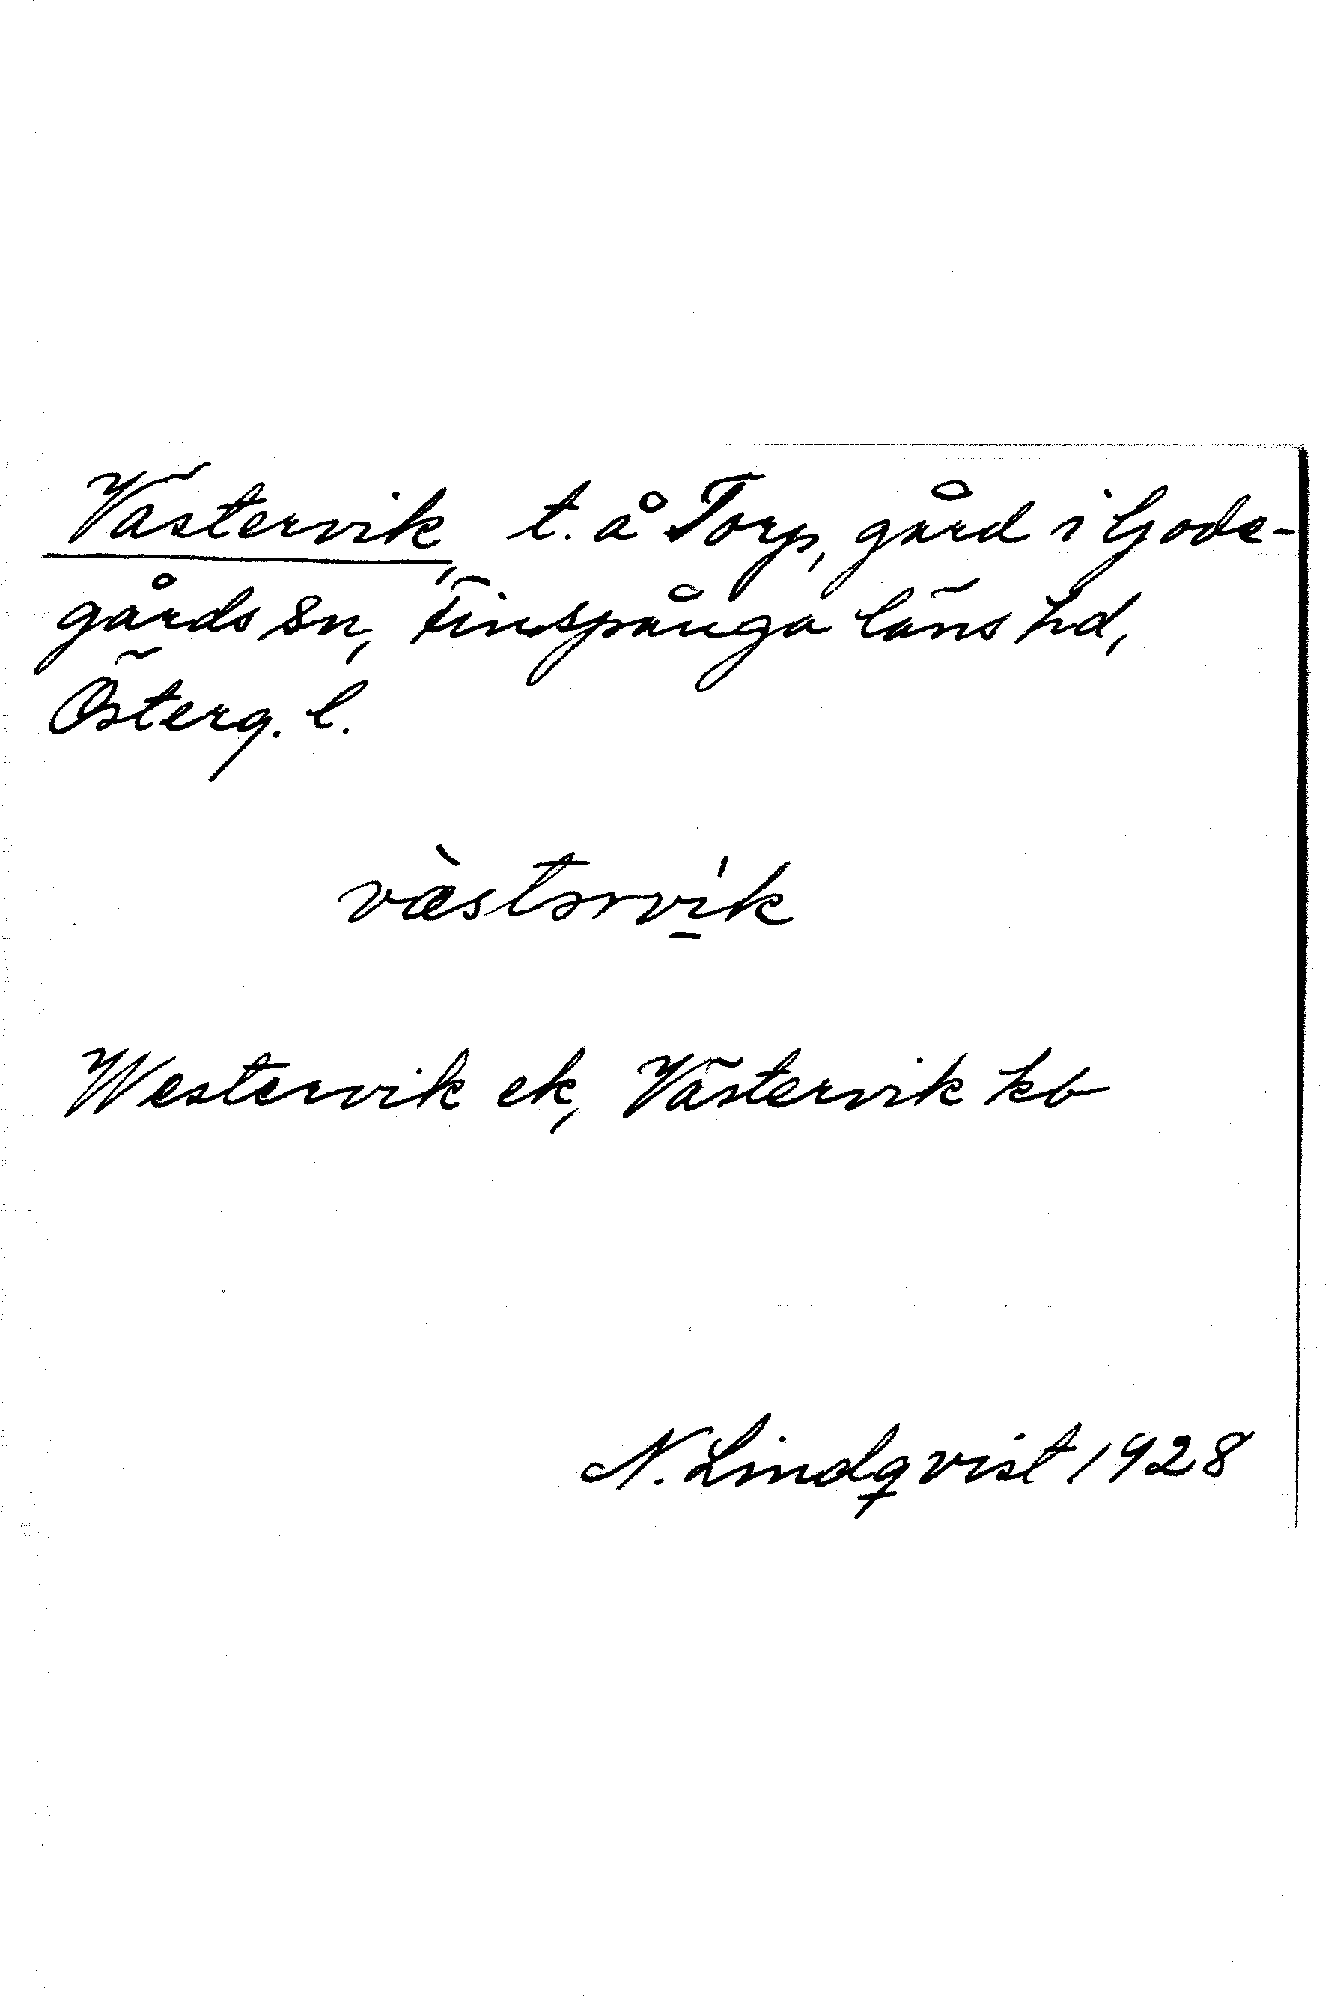 Västervik, t. å Torp, gård i Gode-
gårds sn, Finspånga läns hd,
Österg. l.
væ̀stərvi̱k
Westervik ek, Västervik kb
N. Lindqvist 1928